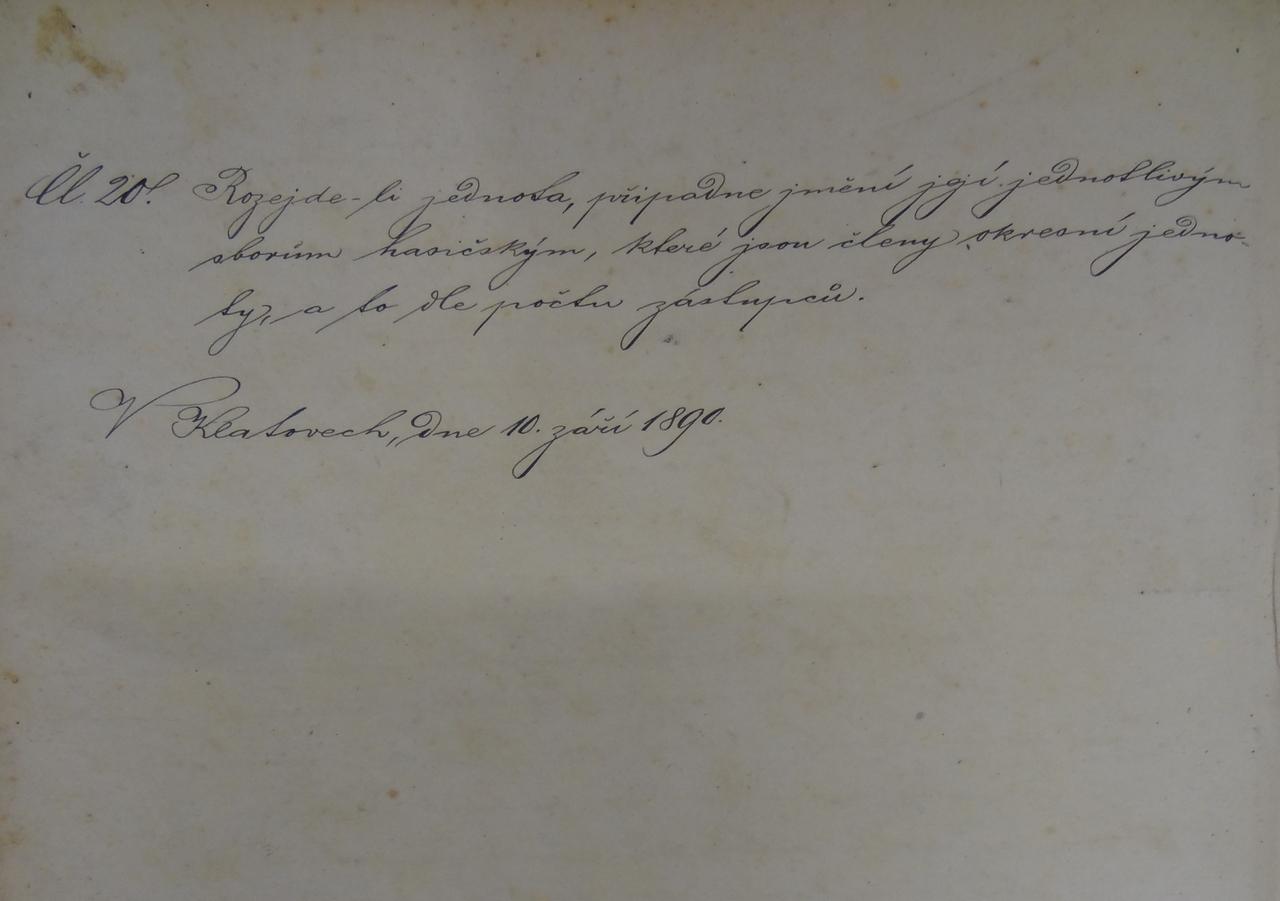 Čl. 20. Rozejde-li jednota, připadne jmění její jednotlivým
sborům hasičským, které jsou členy okresní jedno-
ty, a to dle počtu zástupců.
V Klatovech, dne 10. září 1890.